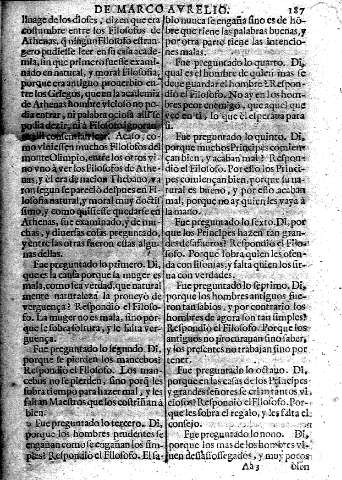 DE MARCO AVRELIO. 187
linage de los dioses, dizen que era
costumbre entre los Filosofos de
Athenas, q̃ ningũ Filosofo estrangero
pudiesse leer en su casa academia,
sin que primero fuesse examinado
en natural, y moral Filosofia,
porque era antiguo prouerbio entre
los Griegos, que en la academia
de Athenas hombre vicioso no podia
entrar, ni palabra ociosa alli se
podia dezir, ni a Filosofo ignorante
alli consentia leer. Acaso, como
viniessen muchos Filosofos del
monte Olimpio, entre los otros vino
vno a ver los Filosofos de Athenas,
y el era de nacion
segun se parecio despues en Filosofia
natural, y moral muy doctissimo,
y como quisiesse quedarse en
Athenas, fue examinado, y de muchas,
y diuersas cosas preguntado,
y entre las otras fueron estas algunas
dellas.
Fue preguntado lo primero. Di,
que es la causa porque la muger es
mala, como sea verdad, que naturalmente
naturaleza la proueyo de
verguença? Respondio el Filosofo.
La muger no es mala, sino porque
le sobra soltura, y le falta verguença.
Fue preguntado lo segundo. Di,
porque se pierden los mancebos?
Respondio el Filosofo. Los mancebos
no se pierden, sino porq̃ les
sobra tiempo para hazer mal, y les
faltan Maestros que los costriñan a
bien.
Fue preguntado lo tercero. Di,
porque los hombres prudentes se
engañan como se engañan los simples?
Respondio el Filosofo. El sabio
nunca se engaña sino es de hombre
que tiene las palabras buenas, y
por otra parte tiene las intenciones
malas.
Fue preguntado lo quarto. Di,
qual es el hombre de quien mas se
deue guardar el hombre? Respondio
el Filosofo. No ay en los hombres
peor enemigo, que aquel que
vee en ti, lo que el espera para
Fue preguntado lo quinto. Di,
porque muchos Principes comiençan
bien, y acaban mal? Respondio
el Filosofo. Por esso los Principes
comiençan bien, porque su natural
es bueno, y por esso acaban
mal, porque no ay quien les vaya à
la mano.
Fue preguntado lo sexto. Di, porque
los Principes hazen tan grandes
desafueros? Respondio el Filosofo.
Porque sobra quien les ofenda
con lisonjas, y falta quien los sirua
con verdades.
Fue preguntado lo septimo. Di,
porque los hombres antiguos fueron
tan sabios, y por contrario los
hombres de agora son tan simples?
Respondio el Filosofo. Porque los
antiguos no procurauan sino saber,
y los presentes no trabajan sino por
tener.
Fue preguntado lo octauo. Di,
porque en las casas de los Principes
y grandes señores se crian tantos viciosos?
Respondio el Filosofo. Porque
les sobra el regalo, y les falta el
consejo.
Fue preguntado lo nono. Di,
porque los mas de los hombres viuen
desassossegados, y muy pocos
Aa 3 biuen